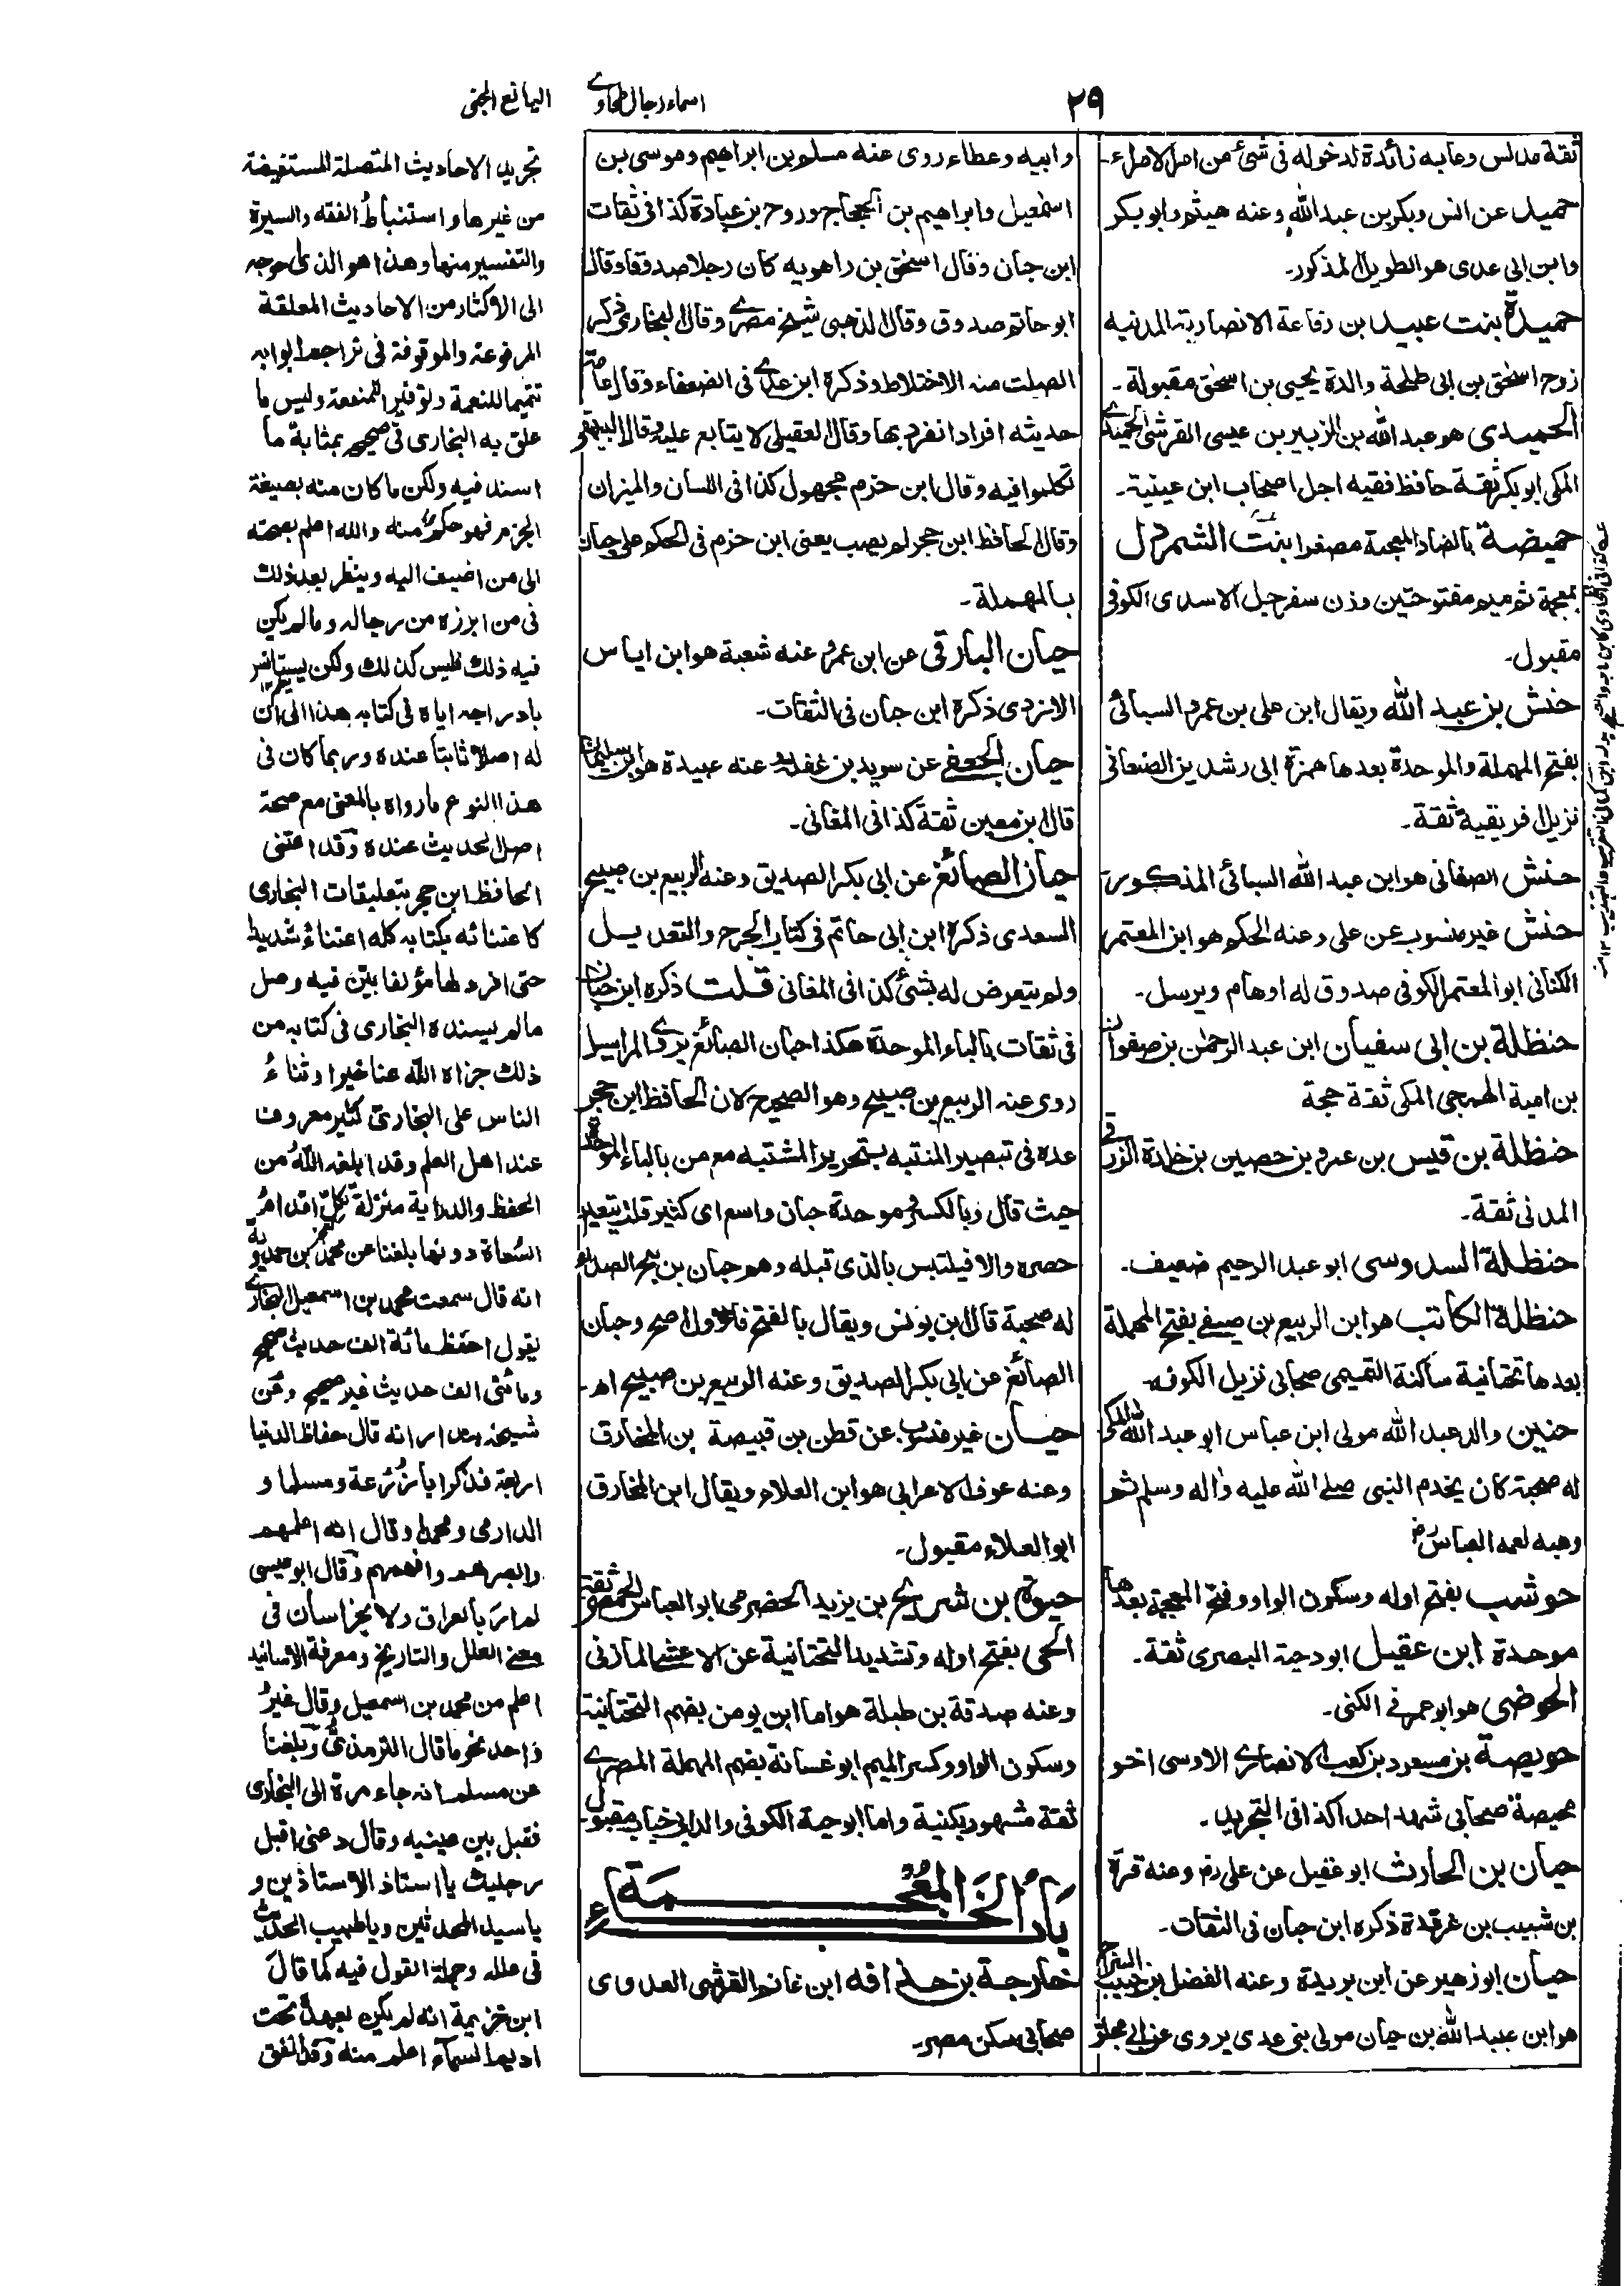 ٢٩
اسماء رجال طحاوى
اليانع الجنى
ثقة مدلس وعابه زائدة لدخوله فى شئ من امر الامراء۔
حميد عن انس وبكر بن عبد الله وعنه هيثم وابو بكر
وابن ابى عدى هو الطويل المذكور۔
حميدة بنت عبيد ابن رفاعة الانصارية المدنيه
زوج اسحٰق بن ابى طلحة والدة يحيى بن اسحٰق مقبولة۔
الحميدى هو عبد الله بن الزبير بن عيسى القرشى الحميدى
المكى ابو بكر ثقة حافظ فقيه اجل اصحاب ابن عيينة۔
حميضة بالضاد المعجمة مصغرا بنت الشمردل
بمعجمة ثم ميم مفتوحتين وزن سفرجل الاسدى الكوفى
مقبول۔
حنش بن عبد الله ويقال ابن على بن عمرو السبائى
بفتح المهملة والموحدة بعدها همزة ابى رشدين الصنعانى
نزيل افريقية ثقة۔
حنش الصنعانى هو ابن عبد الله السبائى المذكور۔
حنش غير منسوب عن على وعنه الحكم هو ابن المعتمر
الكنانى ابو المعتمر الكوفى صدوق له اوهام ويرسل۔
حنظلة بن ابى سفيان ابن عبد الرحمٰن بن صفوان
بن امية الجمحى المكى ثقة حجة
حنظلة بن قيس بن عمرو بن حصين بن خلدة الزرقى
المدنى ثقة۔
حنظلة السدوسى ابو عبد الرحيم ضعيف۔
حنظلة الكاتب هو ابن الربيع بن صيفى بفتح المهملة
بعدها تحتانية ساكنة التميمى صحابى نزيل الكوفه۔
حنين والد عبد الله مولى ابن عباس ابو عبد الله المكى
له صحبة كان يخدم النبى صلى الله عليه واٰله وسلم ثم
وهبه لعمه العباس رض
حوشب بفتح اوله وسكون الواو وفتح المعجمة بعدها
موحدة ابن عقيل ابو دحية البصرى ثقة۔
الحوضى هو ابو عمر فى الكنى۔
حويصة بن مسعود بن كعب الانصارى الاوسى اخو
محيصة صحابى شهد احدا كذا فى التجريد۔
حيان بن الحارث ابو عقيل عن على رض وعنه قرة
بن شبيب بن غرقدة ذكره ابن حبان فى الثقات۔
حيان ابو زهير عن ابن بريدة وعنه الفضل بن حبيب السراج
هو ابن عبيد الله بن حيان مولى بنى عدى يروى عن ابى مجلز
وابيه وعطاء روى عنه مسلم بن ابراهيم وموسى بن
اسمٰعيل وابراهيم بن الحجاج وروح بن عبادة كذا فى ثقات
ابن حبان وقال اسحٰق بن راهويه كان رجلا صدوقا وقال
ابو حاتم صدوق وقال الذهبى شيخ مصرى وقال البخارى ذكر
الصلت منه الاختلاط وذكره ابن عدى فى الضعفاء وقال عامة
حديثه افرادا انفرد بها وقال العقيلى لا يتابع عليه وقال البيهقى
تكلموا فيه وقال ابن حزم مجهول كذا فى اللسان والميزان
وقال الحافظ ابن حجر لم يصب يعنى ابن حزم فى الحكم على حيان
بالمهملة۔
حيان البارقى عن ابن عمر وعنه شعبة هو ابن اياس
الازدى ذكره ابن حبان فى الثقات۔
حيان الجعفى عن سويد بن غفلة وعنه عبيدة هو ابن سليمان
قال ابن معين ثقة كذا فى المغانى۔
حيان الصائغ عن ابى بكر الصديق وعنه الربيع بن صبيح
السعدى ذكره ابن ابى حاتم فى كتاب الجرح والتعديل
ولم يتعرض له بشئ كذا فى المغانى قلت ذكره ابن حبان
فى ثقات بالباء الموحدة هكذا حبان الصائغ يروى المراسيل
روى عنه الربيع بن صبيح وهو الصحيح لان الحافظ ابن حجر
عده فى تبصير المنتبه بتحرير المشتبه مع من بالباء الموحدة
حيث قال وبالكسر وموحدة حبان واسع اى كثير قلت يتعين
حصره والا فيلتبس بالذى قبله وهم حبان بن بح الصدائى
له صحبة قال ابن يونس ويقال بالفتح فالاول اصح وحبان
الصائغ عن ابى بكر الصديق وعنه الربيع بن صبيح اهـ۔
حيان غير منسوب عن قطن بن قبيصة بن المخارق
وعنه عوف الاعرابى هو ابن العلاء ويقال ابن المخارق
ابو العلاء مقبول۔
حيوة بن شريح بن يزيد الحضرمى ابو العباس الحمصى ثقة
الحى بفتح اوله وتشديد التحتانية عن الاعشى المازنى
وعنه صدقة بن طيلة هو اما ابن يومن بضم التحتانية
وسكون الواو وكسر الميم ابو غسانة بضم المهملة المصرى
ثقة مشهور بكنية واما ابو حية الكوفى والد ابى خباب مقبول۔
باب الخاء المعجمة
خارجة بن حذافه ابن غانم القرشى العدوى
صحابى سكن مصر۔
تجريد الاحاديث المتصلة المستفيضة
من غيرها واستنباط الفقه والسيرة
والتفسير منها وهذا هو الذى احوجه
الى الاكثار من الاحاديث المعلقة
المرفوعة والموقوفة فى تراجم ابوابه
تتميما للنعمة وتوفير للمنفعة وليس ما
علق به البخارى فى صحيحه بمثابة ما
اسند فيه ولكن ما كان منه بصيغة
الجزم فهو حكم منه والله اعلم بصحته
الى من اضيف اليه وينظر بعد ذلك
فى من ابرزه من رجاله وما لم يكن
فيه ذلك فليس كذلك ولكن يستانس
بادراجه اياه فى كتابه هذا الى ان
له اصلا ثابتا عنده وربما كان فى
هذا النوع ما رواه بالمعنى مع صحة
اصل الحديث عنده وقد اعتنى
الحافظ ابن حجر بتعليقات البخارى
كاعتنائه بكتابه كله اعتناء شديدا
حتى افرد لها مؤلفا بين فيه وصل
ما لم يسنده البخارى فى كتابه من
ذلك جزاه الله عنا خيرا وثناء
الناس على البخارى كثير معروف
عند اهل العلم وقد ابلغه الله من
الحفظ والدراية منزلة تكل اقدام
السعاة دونها بلغنا عن محمد بن حمدويه
انه قال سمعت محمد بن اسمعيل البخارى
يقول احفظ مائة الف حديث صحيح
ومائتى الف حديث غير صحيح وعن
شيخه بندار انه قال حفاظ الدنيا
اربعة فذكر ابا زرعة ومسلما و
الدارمى ومحمدا وقال انه اعلمهم
وابصرهم وافهمهم وقال ابو عيسى
لم ار بالعراق ولا بخراسان فى
معنى العلل والتاريخ ومعرفة الاسانيد
اعلم من محمد بن اسمعيل وقال غير
واحد نحو ما قال الترمذى وبلغنا
عن مسلم انه جاء مرة الى البخارى
فقبل بين عينيه وقال دعنى اقبل
رجليك يا استاذ الاستاذين و
يا سيد المحدثين ويا طبيب الحديث
فى علله وجملة القول فيه كما قال
ابن خزيمة انه لم يكن بعهده تحت
اديم السماء اعلم منه وقد اتفق